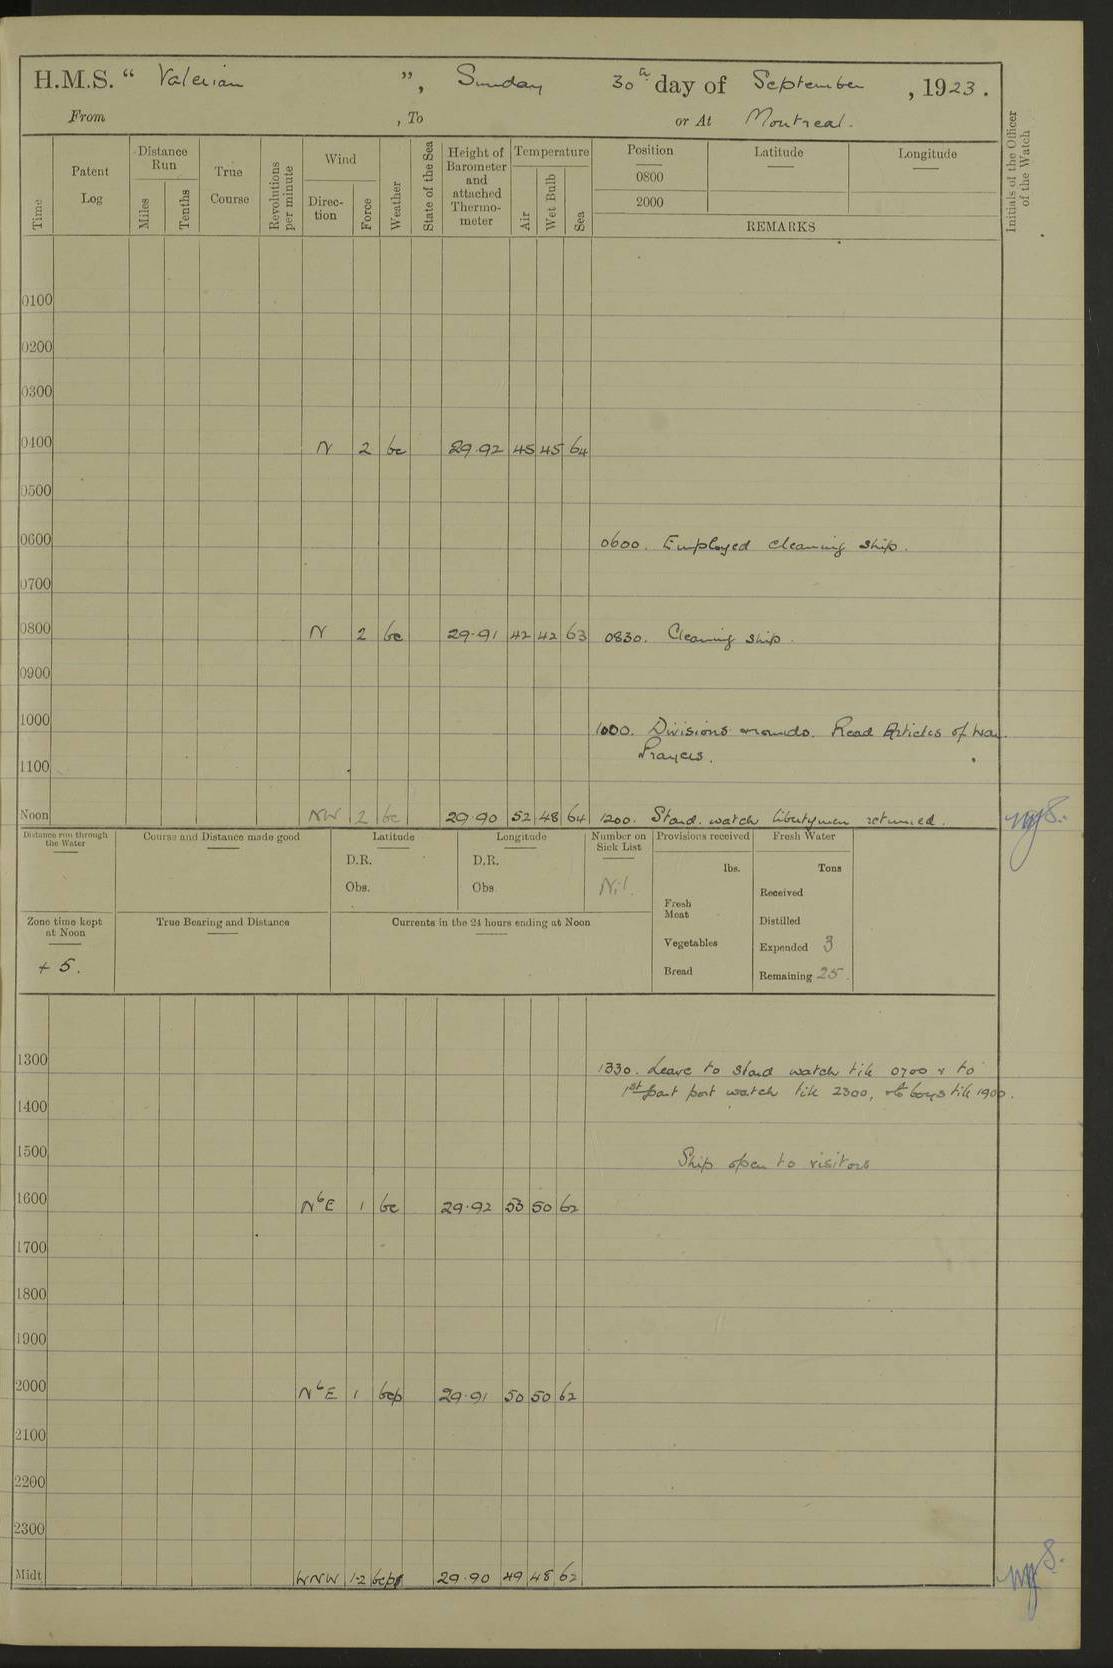 H.M.S. " Valerian ", Sunday 30th day of September, 1923.
From , To or At Montreal.
Time
Patent Log
Distance Run
Miles
Tenths
True Course
Revolutions per minute
Wind
Direction
Force
Weather
State of the Sea
Height of Barometer and attached Thermometer
Temperature
Air
Wet Bulb
Sea
Position Latitude Longitude
0800
2000
REMARKS
Initials of the Officer of the Watch
0100
0200
0300
0400 N 2 bc 29.92 45 45 64
0500
0600 0600. Employed cleaning ship.
0700
0800 N 2 bc 29.91 42 42 63 0830. Cleaning ship.
0900
1000 1000. Divisions rounds. Read Articles of War.
Prayers.
1100
Noon NW 2 bc 29.90 52 48 64 1200. Starbd. watch libertymen returned.
Distance run through the Water
Course and Distance made good
Latitude
D.R.
Obs.
Longitude
D.R.
Obs
Number on Sick List
Nil.
Provisions received
lbs.
Fresh Meat
Vegetables
Bread
Fresh Water
Tons
Received
Distilled
Expended 3
Remaining 25.
Zone time kept at Noon
+ 5.
True Bearing and Distance
Currents in the 24 hours ending at Noon
1300 1330. Leave to starbd watch till 0700 & to
1st part port watch till 2300, boys till 1900.
1400
1500 Ship open to visitors
1600 NbE 1 bc 29.92 53 50 62
1700
1800
1900
2000 NbE 1 bcp 29.91 50 50 62
2100
2200
2300
Midt WNW 1-2 bcp 29.90 49 48 62